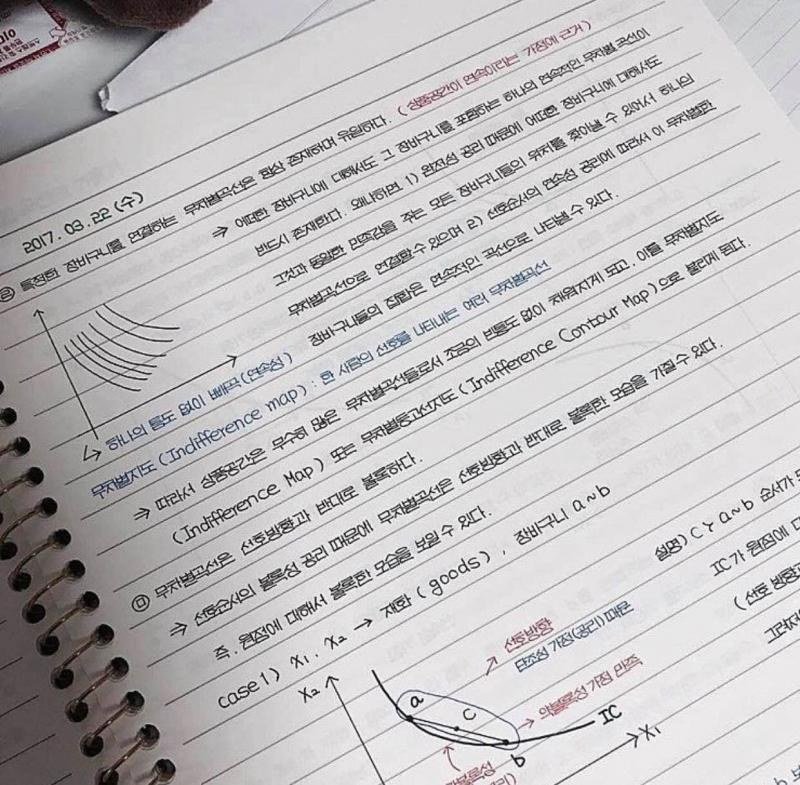 2017. 03. 22 (수)
㉣ 특정한 장바구니를 연결하는 무차별곡선은 항상 존재하며 유일하다. (상품공간이 연속이라는 가정에 근거)
⇒ 어떠한 장바구니에 대해서도 그 장바구니를 포함하는 하나의 연속적인 무차별 곡선이
반드시 존재한다. 왜냐하면 1) 완전성 공리 때문에 어떠한 장바구니에 대해서도
그것과 동일한 만족감을 주는 모든 장바구니들의 위치를 찾아낼 수 있어서 하나의
무차별곡선으로 연결할 수 있으며 2) 선호순서의 연속성 공리에 따라서 이 무차별한
장바구니들의 집합은 연속적인 곡선으로 나타낼 수 있다.
↳ 하나의 틈도 없이 빼곡 (연속성)
무차별지도 (Indifference map) : 한 사람의 선호를 나타내는 여러 무차별곡선
⇒ 따라서 상품공간은 무수히 많은 무차별곡선들로서 조금의 빈틈도 없이 채워지게 되고, 이를 무차별지도
(Indifference Map) 또는 무차별등고선지도 (Indifference Contour Map)으로 불리게 된다.
㉤ 무차별곡선은 선호방향과 반대로 볼록하다.
⇒ 선호순서의 볼록성 공리 때문에 무차별곡선은 선호방향과 반대로 볼록한 모습을 가질 수 있다.
즉, 원점에 대해서 볼록한 모습을 보일 수 있다.
case 1) X₁, X₂ → 재화 (goods), 장바구니 a~b
설명) C≻a~b 순서가
IC가 원점에
(선호 방향과
그러
X₂
a
c
b
IC
X₁
↗ 선호방향
단조성 가정(공리) 때문
→ 약볼록성 가정 만족
볼록성